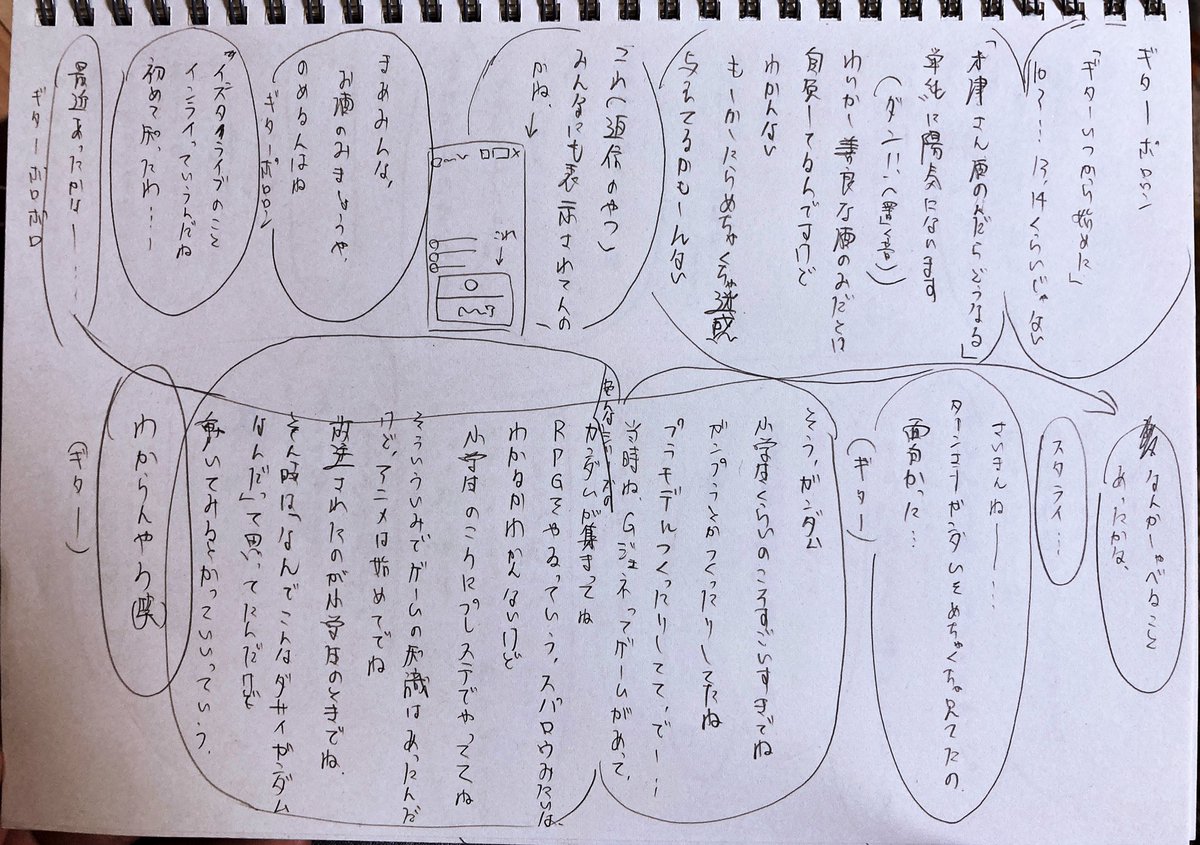 ギターポロロン
「ギターいつから始めた」
10？…13,14くらいじゃない
「木津さん酒のんだらどうなる」
単純に陽気になります
(ダン!!へ置く音)
わしかー善良な酒のみだとは
自負してるんですけど
わかんない
もしかしたらめちゃくちゃ迷惑
与えてるかもしんない
これへ返信のやつ)
みんなにも表示されてんの
かね、
これ
まあみんな、
お酒のみましょうや、
のめる人はね
ギターポロロン
"インスタライブのこと
インライっていうんだね
初めて知ったわ…
最近あったかなー…
ギターポロポロ
なんかしゃべること
あったかな、
スタライ…
さいきんねー…
ターンエーガンダムいそめちゃくちゃ見てたの
面白かった…
(ギター)
そう、ガンダム
小学生くらいのころすごいすきでね
ガンプラとかつくったりしてたね
プラモデルつくったりしてて、でー…
当時ね、Gジェネってゲームがあって、
色んなシリーズの
ガンダムが集まってね
RPGをやるっていう、スパロウみたいな
わかるかわかんないけど
小学生のころにプレステでやっててね
そういういみでゲームの知識はあったんだ
けど、アニメは始めてでね
放送されたのが小学生のときでね、
そん時は「なんでこんなダサイガンダム
なんだ」って思ってたんだけど
動いてみるとかっていいっていう、
わからんやろ(笑)
(ギター)